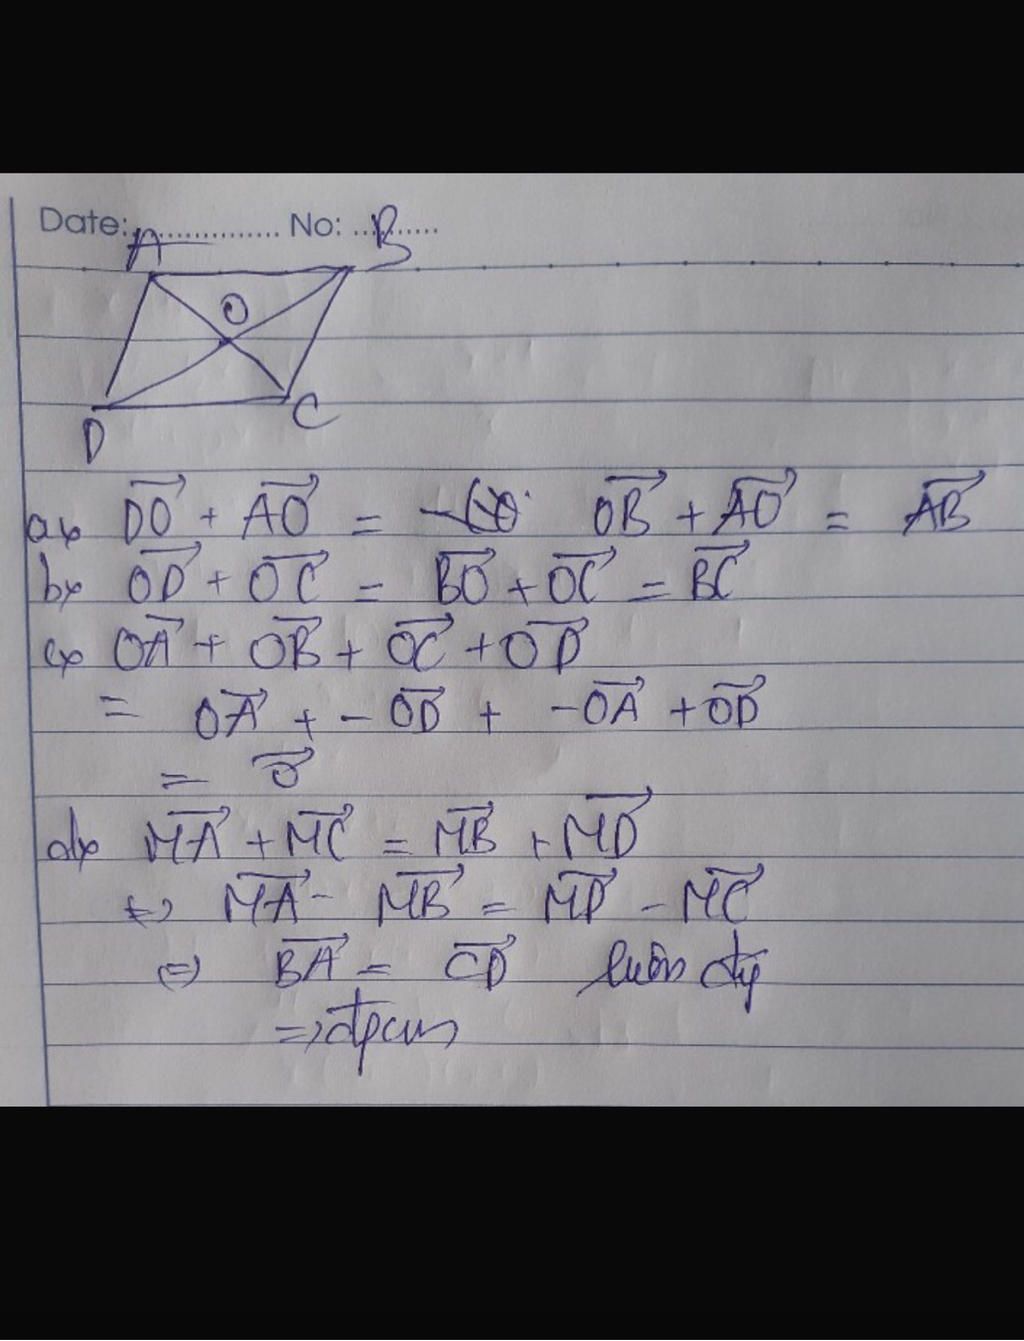 Date: ............... No: ...........
A B
O
D C
a, $\overrightarrow{DO} + \overrightarrow{AO} = \overrightarrow{OB} + \overrightarrow{AO} = \overrightarrow{AB}$
b, $\overrightarrow{OD} + \overrightarrow{OC} = \overrightarrow{BO} + \overrightarrow{OC} = \overrightarrow{BC}$
c, $\overrightarrow{OA} + \overrightarrow{OB} + \overrightarrow{OC} + \overrightarrow{OD}$
$= \overrightarrow{OA} + -\overrightarrow{OD} + -\overrightarrow{OA} + \overrightarrow{OD}$
$= \overrightarrow{0}$
d, $\overrightarrow{MA} + \overrightarrow{MC} = \overrightarrow{MB} + \overrightarrow{MD}$
⇔ $\overrightarrow{MA} - \overrightarrow{MB} = \overrightarrow{MD} - \overrightarrow{MC}$
⇔ $\overrightarrow{BA} = \overrightarrow{CD}$ luôn
⇒ đpcm